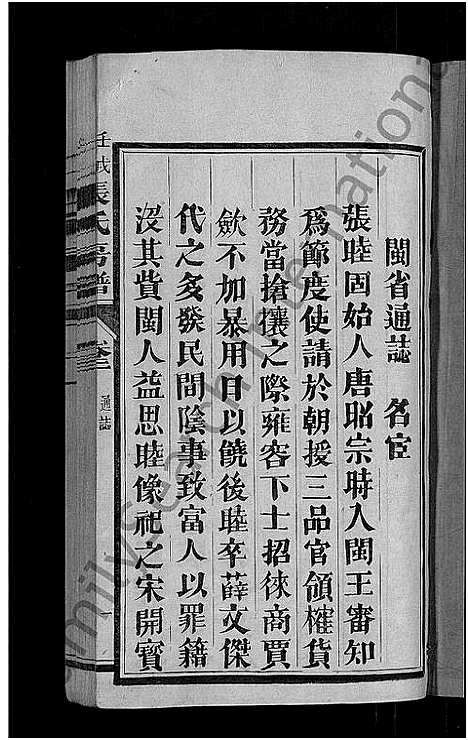 閩省通誌　名宦
張睦固始人唐昭宗時入閩王審知
爲節度使請於朝授三品官領榷貨
務當搶攘之際雍容下士招徠商賈
歛不加暴用日以饒後睦卒薛文傑
代之多發民間陰事致富人以罪籍
沒其貲閩人益思睦像祀之宋開寶
壬戌張氏房譜
卷三
通誌
一